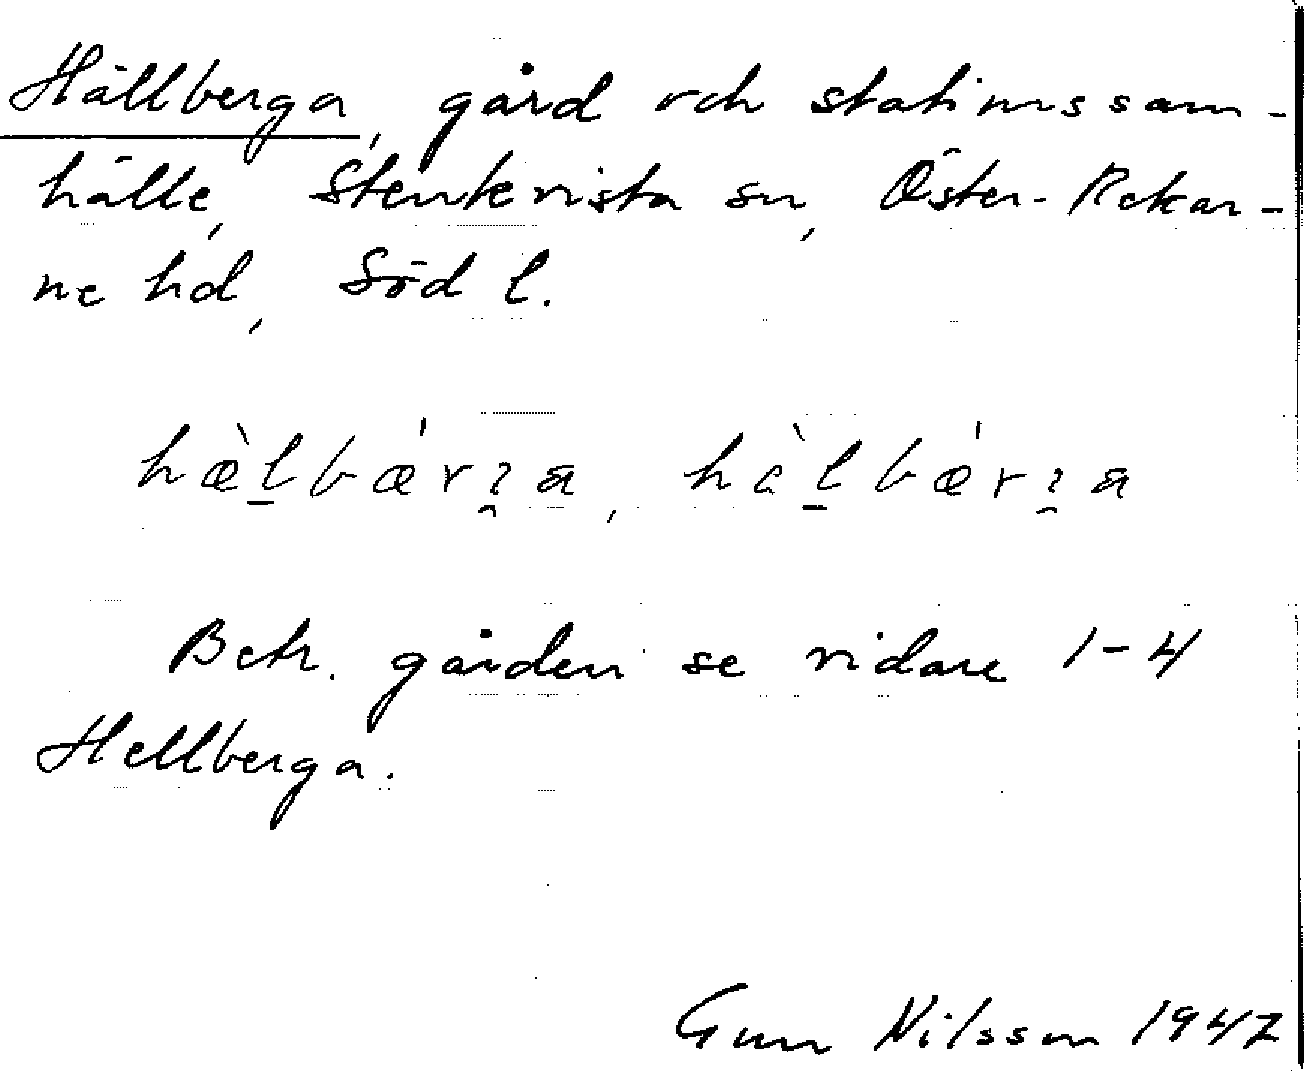 Hällberga, gård och stationssam-
hälle, Stenkvista sn, Öster-Rekar-
ne hd, Söd l.
hæ̀l̠bǽrꝛ̯a, hὲl̠bǽrꝛ̯a
Betr. gården se vidare 1-4
Hellberga.
Gun Nilsson 1947